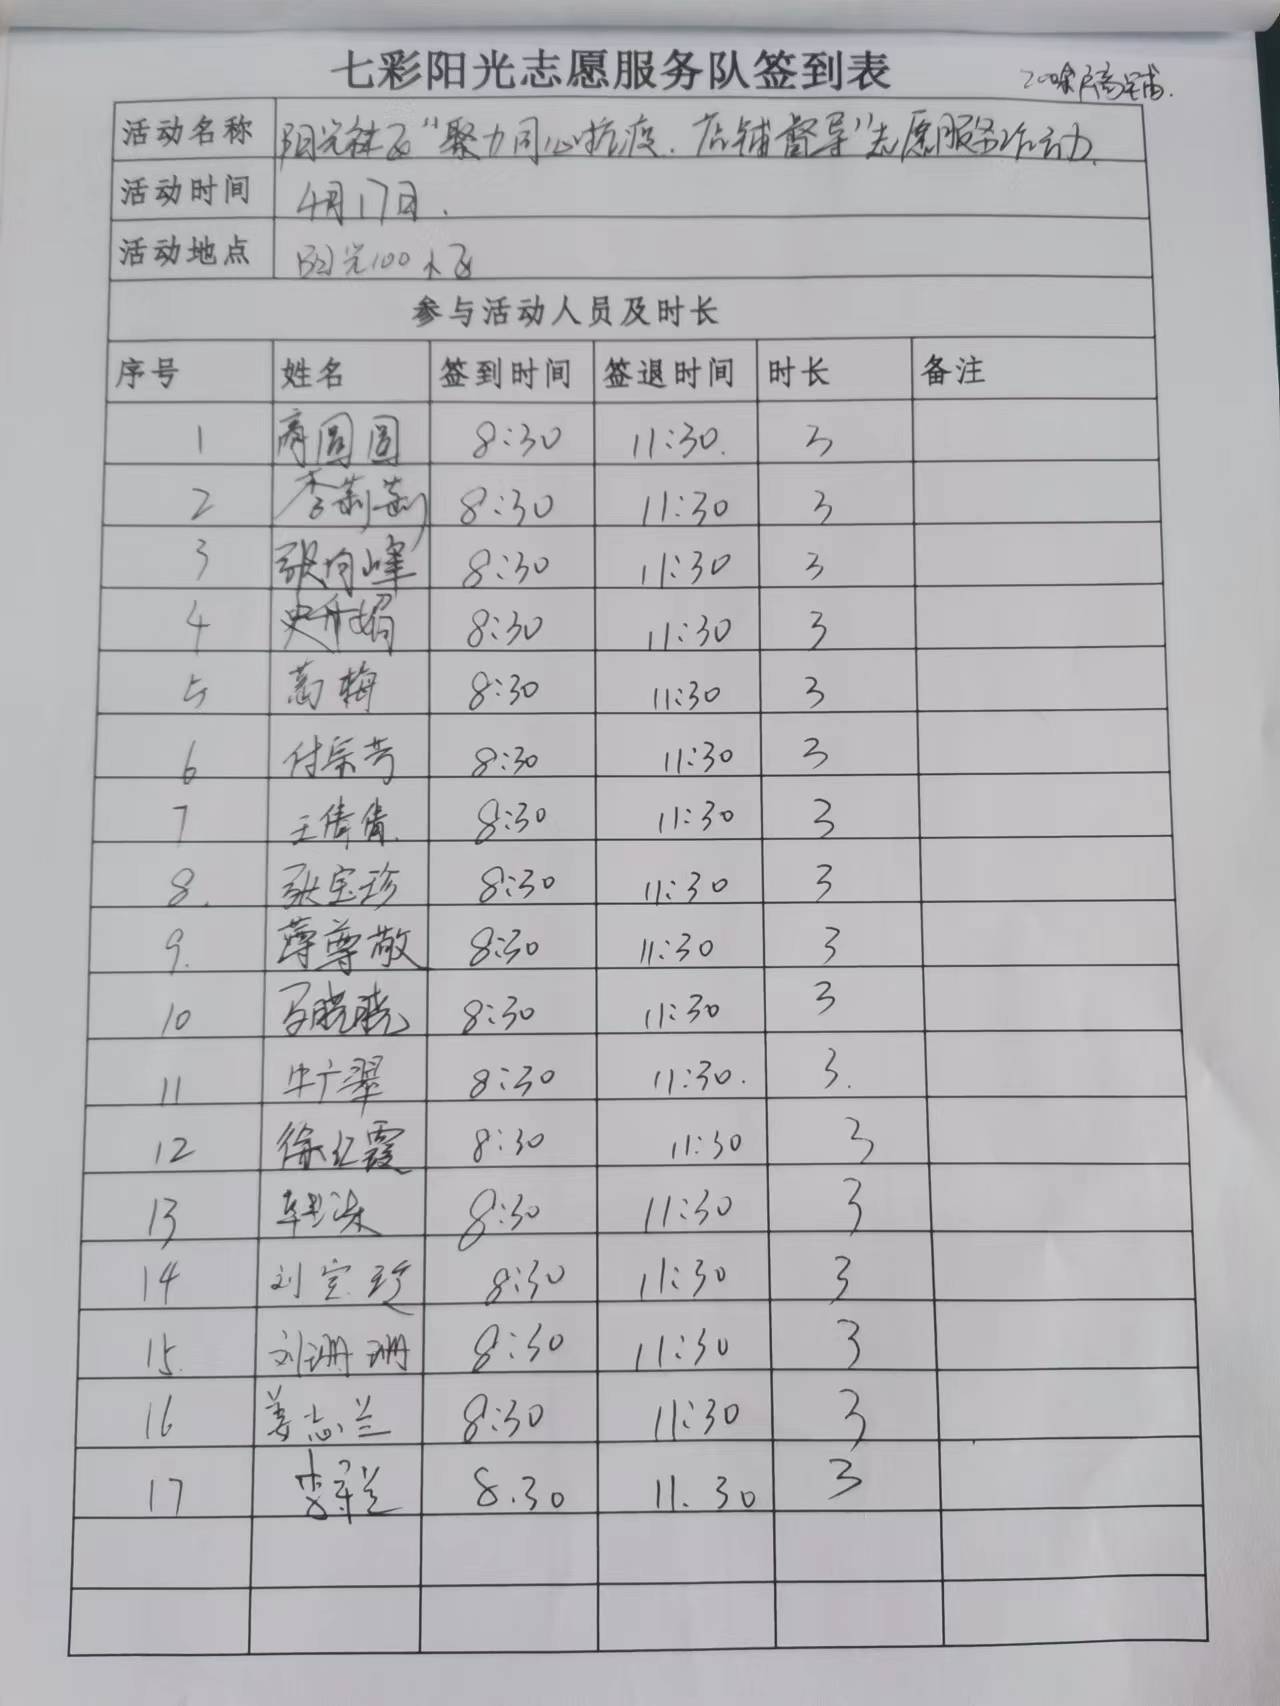 七彩阳光志愿服务队签到表
200余户商铺.
活动名称 阳光社区"聚力同心抗疫.店铺督导"志愿服务活动.
活动时间 4月17日.
活动地点 阳光100小区
参与活动人员及时长
序号 姓名 签到时间 签退时间 时长 备注
1 圆圆 8:30 11:30. 3
2 李莉莉 8:30 11:30 3
3 张向峰 8:30 11:30 3
4 史丹娟 8:30 11:30 3
5 高梅 8:30 11:30 3
6 付宗芳 8:30 11:30 3
7 王倩倩. 8:30 11:30 3
8. 张宝珍 8:30 11:30 3
9. 薄尊敬 8:30 11:30 3
10 马晓晓 8:30 11:30 3
11 牛广翠 8:30 11:30. 3.
12 徐红霞 8:30 11:30 3
13 韩 8:30 11:30 3
14 刘宝珍 8:30 11:30 3
15. 刘珊珊 8:30 11:30 3
16 姜志兰 8:30 11:30 3
17 李兰 8.30 11.30 3